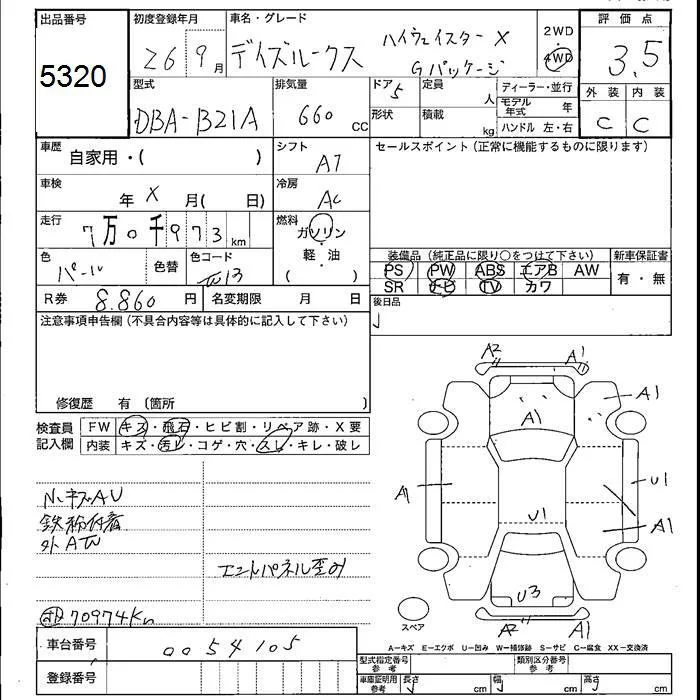 出品番号 初度登録年月 車名・グレード 2WD ・ 4WD 評価点
5320 26 9月 デイズルークス ハイウェイスター X Gパッケージ 3.5
型式 排気量 ドア 定員 人 ディーラー・並行 外装 内装
DBA-B21A 660 CC 5 形状 積載 kg モデル年式 年 ハンドル 左・右 C C
車歴 自家用・( ) シフト AT セールスポイント(正常に機能するものに限ります)
車検 年 X 月( 日) 冷房 AC
走行 7万0千973 km 燃料 ガソリン ・ 軽・油 ( )
色 パール 色替 色コード 装備品(純正品に限り○をつけて下さい) 新車保証書
PS PW ABS エアB AW 有・無
SR ナビ TV カワ
R券 8.860 円 名変期限 月 日 後日品
注意事項申告欄(不具合内容等は具体的に記入して下さい)
修復歴 有 〔箇所 〕
検査員記入欄 FW キズ・飛石・ヒビ割・リペア跡・X要
内装 キズ・汚レ・コゲ・穴・スレ・キレ・破レ
A2 A1
A1 A1
A1 U1
U1 A1
U3
A2 A1
スペア
エンドパネル歪み
70974Km
A−キズ E−エクボ U−凹み W−補修跡 S−サビ C−腐食 XX−交換済
車台番号 0054105 型式指定番号 参考 類別区分番号 参考
登録番号 車庫証明用 参考 長さ cm 幅 cm 高さ cm